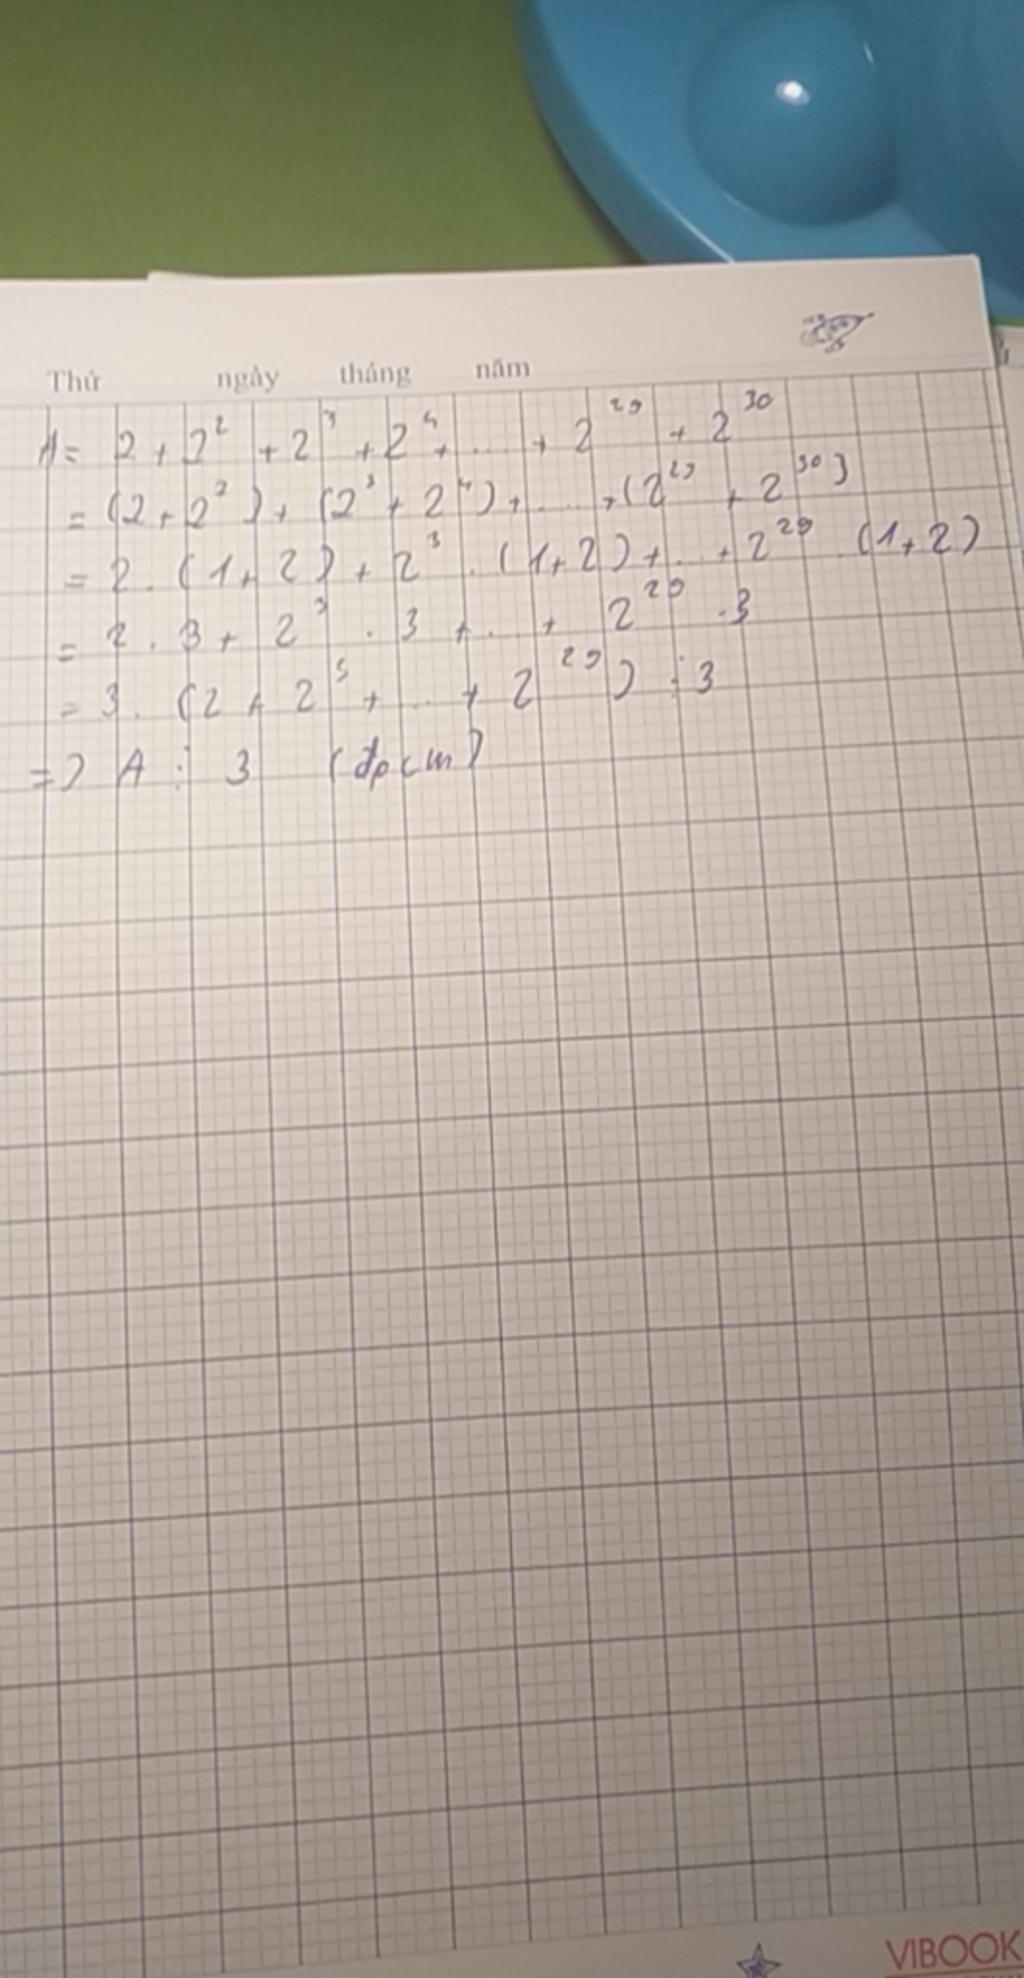 Thứ ngày tháng năm
A = 2 + 2² + 2³ + 2⁴ + .... + 2²⁹ + 2³⁰
= (2 + 2²) + (2³ + 2⁴) + .... + (2²⁹ + 2³⁰)
= 2 . (1 + 2) + 2³ . (1 + 2) + .. + 2²⁹ . (1 + 2)
= 2 . 3 + 2³ . 3 + .. + 2²⁹ . 3
= 3 . (2 + 2³ + ... + 2²⁹) ⋮ 3
=> A ⋮ 3 (đpcm)
VIBOOK